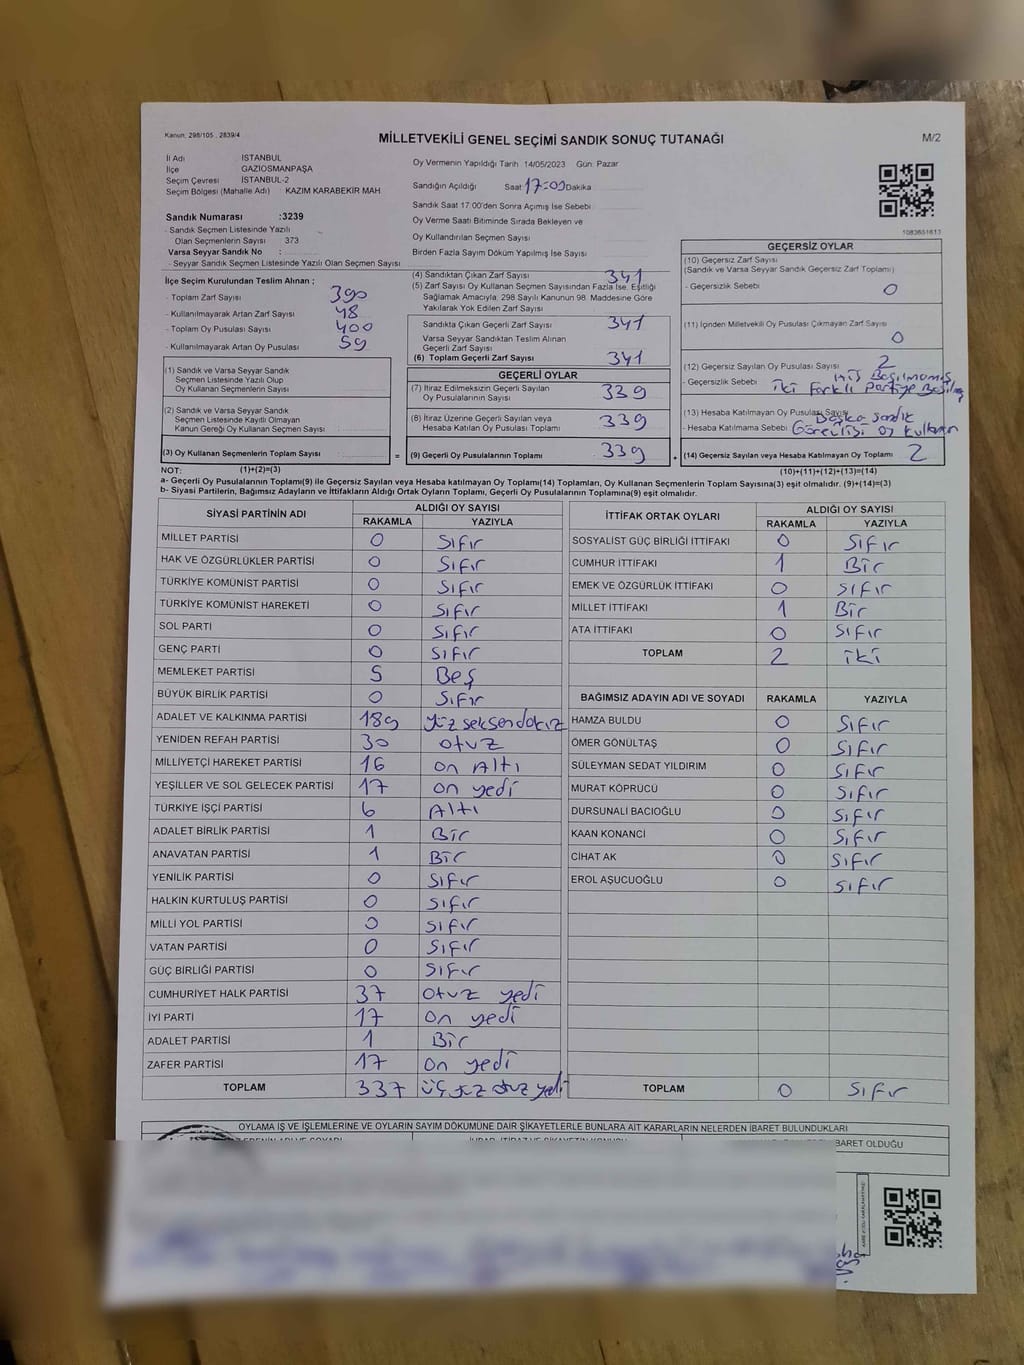 Kanun, 298/105 , 2839/4
MİLLETVEKİLİ GENEL SEÇİMİ SANDIK SONUÇ TUTANAĞI
M/2
İl Adı İSTANBUL
İlçe GAZİOSMANPAŞA
Seçim Çevresi İSTANBUL-2
Seçim Bölgesi (Mahalle Adı) KAZIM KARABEKİR MAH.
Sandık Numarası :3239
- Sandık Seçmen Listesinde Yazılı
Olan Seçmenlerin Sayısı : 373
Varsa Seyyar Sandık No :
- Seyyar Sandık Seçmen Listesinde Yazılı Olan Seçmen Sayısı
Oy Vermenin Yapıldığı Tarih 14/05/2023 Gün: Pazar
Sandığın Açıldığı Saat 17:00 Dakika
Sandık Saat 17:00'den Sonra Açımış İse Sebebi
Oy Verme Saati Bitiminde Sırada Bekleyen ve
Oy Kullandırılan Seçmen Sayısı
Birden Fazla Sayım Döküm Yapılmış İse Sayısı
1083651613
İlçe Seçim Kurulundan Teslim Alınan ;
- Toplam Zarf Sayısı 390
- Kullanılmayarak Artan Zarf Sayısı 48
- Toplam Oy Pusulası Sayısı 400
- Kullanılmayarak Artan Oy Pusulası 59
(1) Sandık ve Varsa Seyyar Sandık
Seçmen Listesinde Yazılı Olup
Oy Kullanan Seçmenlerin Sayısı :
(2) Sandık ve Varsa Seyyar Sandık
Seçmen Listesinde Kayıtlı Olmayan
Kanun Gereği Oy Kullanan Seçmen Sayısı :
(3) Oy Kullanan Seçmenlerin Toplam Sayısı :
(4) Sandıktan Çıkan Zarf Sayısı 341
(5) Zarf Sayısı Oy Kullanan Seçmen Sayısından Fazla İse, Eşitliği
Sağlamak Amacıyla, 298 Sayılı Kanunun 98. Maddesine Göre
Yakılarak Yok Edilen Zarf Sayısı
Sandıkta Çıkan Geçerli Zarf Sayısı 341
Varsa Seyyar Sandıktan Teslim Alınan
Geçerli Zarf Sayısı
(6) Toplam Geçerli Zarf Sayısı 341
GEÇERLİ OYLAR
(7) İtiraz Edilmeksizin Geçerli Sayılan
Oy Pusulalarının Sayısı 339
(8) İtiraz Üzerine Geçerli Sayılan veya
Hesaba Katılan Oy Pusulası Toplamı 339
= (9) Geçerli Oy Pusulalarının Toplamı 339
GEÇERSİZ OYLAR
(10) Geçersiz Zarf Sayısı
(Sandık ve Varsa Seyyar Sandık Geçersiz Zarf Toplamı)
- Geçersizlik Sebebi : 0
(11) İçinden Milletvekili Oy Pusulası Çıkmayan Zarf Sayısı
0
(12) Geçersiz Sayılan Oy Pusulası Sayısı 2
- Geçersizlik Sebebi : Hiç Basılmamış
iki Farklı Partiye Basılmış
(13) Hesaba Katılmayan Oy Pusulası Sayısı
Başka sandık
- Hesaba Katılmama Sebebi : Görevlisi oy kullanan
+ (14) Geçersiz Sayılan veya Hesaba Katılmayan Oy Toplamı 2
NOT: (1)+(2)=(3)
(10)+(11)+(12)+(13)=(14)
a- Geçerli Oy Pusulalarının Toplamı(9) ile Geçersiz Sayılan veya Hesaba katılmayan Oy Toplamı(14) Toplamları, Oy Kullanan Seçmenlerin Toplam Sayısına(3) eşit olmalıdır. (9)+(14)=(3)
b- Siyasi Partilerin, Bağımsız Adayların ve İttifakların Aldığı Ortak Oyların Toplamı, Geçerli Oy Pusulalarının Toplamına(9) eşit olmalıdır.
SİYASİ PARTİNİN ADI ALDIĞI OY SAYISI
RAKAMLA YAZIYLA
MİLLET PARTİSİ 0 Sıfır
HAK VE ÖZGÜRLÜKLER PARTİSİ 0 Sıfır
TÜRKİYE KOMÜNİST PARTİSİ 0 Sıfır
TÜRKİYE KOMÜNİST HAREKETİ 0 Sıfır
SOL PARTİ 0 Sıfır
GENÇ PARTİ 0 Sıfır
MEMLEKET PARTİSİ 5 Beş
BÜYÜK BİRLİK PARTİSİ 0 Sıfır
ADALET VE KALKINMA PARTİSİ 189 yüz seksendokuz
YENİDEN REFAH PARTİSİ 30 otuz
MİLLİYETÇİ HAREKET PARTİSİ 16 on Altı
YEŞİLLER VE SOL GELECEK PARTİSİ 17 on yedi
TÜRKİYE İŞÇİ PARTİSİ 6 Altı
ADALET BİRLİK PARTİSİ 1 Bir
ANAVATAN PARTİSİ 1 Bir
YENİLİK PARTİSİ 0 Sıfır
HALKIN KURTULUŞ PARTİSİ 0 Sıfır
MİLLİ YOL PARTİSİ 0 Sıfır
VATAN PARTİSİ 0 Sıfır
GÜÇ BİRLİĞİ PARTİSİ 0 Sıfır
CUMHURİYET HALK PARTİSİ 37 otuz yedi
İYİ PARTİ 17 on yedi
ADALET PARTİSİ 1 Bir
ZAFER PARTİSİ 17 on yedi
TOPLAM 337 üç yüz otuz yedi
İTTİFAK ORTAK OYLARI ALDIĞI OY SAYISI
RAKAMLA YAZIYLA
SOSYALİST GÜÇ BİRLİĞİ İTTİFAKI 0 Sıfır
CUMHUR İTTİFAKI 1 Bir
EMEK VE ÖZGÜRLÜK İTTİFAKI 0 Sıfır
MİLLET İTTİFAKI 1 Bir
ATA İTTİFAKI 0 Sıfır
TOPLAM 2 iki
BAĞIMSIZ ADAYIN ADI VE SOYADI RAKAMLA YAZIYLA
HAMZA BULDU 0 Sıfır
ÖMER GÖNÜLTAŞ 0 Sıfır
SÜLEYMAN SEDAT YILDIRIM 0 Sıfır
MURAT KÖPRÜCÜ 0 Sıfır
DURSUNALİ BACIOĞLU 0 Sıfır
KAAN KONANCİ 0 Sıfır
CİHAT AK 0 Sıfır
EROL AŞUCUOĞLU 0 Sıfır
TOPLAM 0 Sıfır
OYLAMA İŞ VE İŞLEMLERİNE VE OYLARIN SAYIM DÖKÜMÜNE DAİR ŞİKAYETLERLE BUNLARA AİT KARARLARIN NELERDEN İBARET BULUNDUKLARI
İBARET OLDUĞU